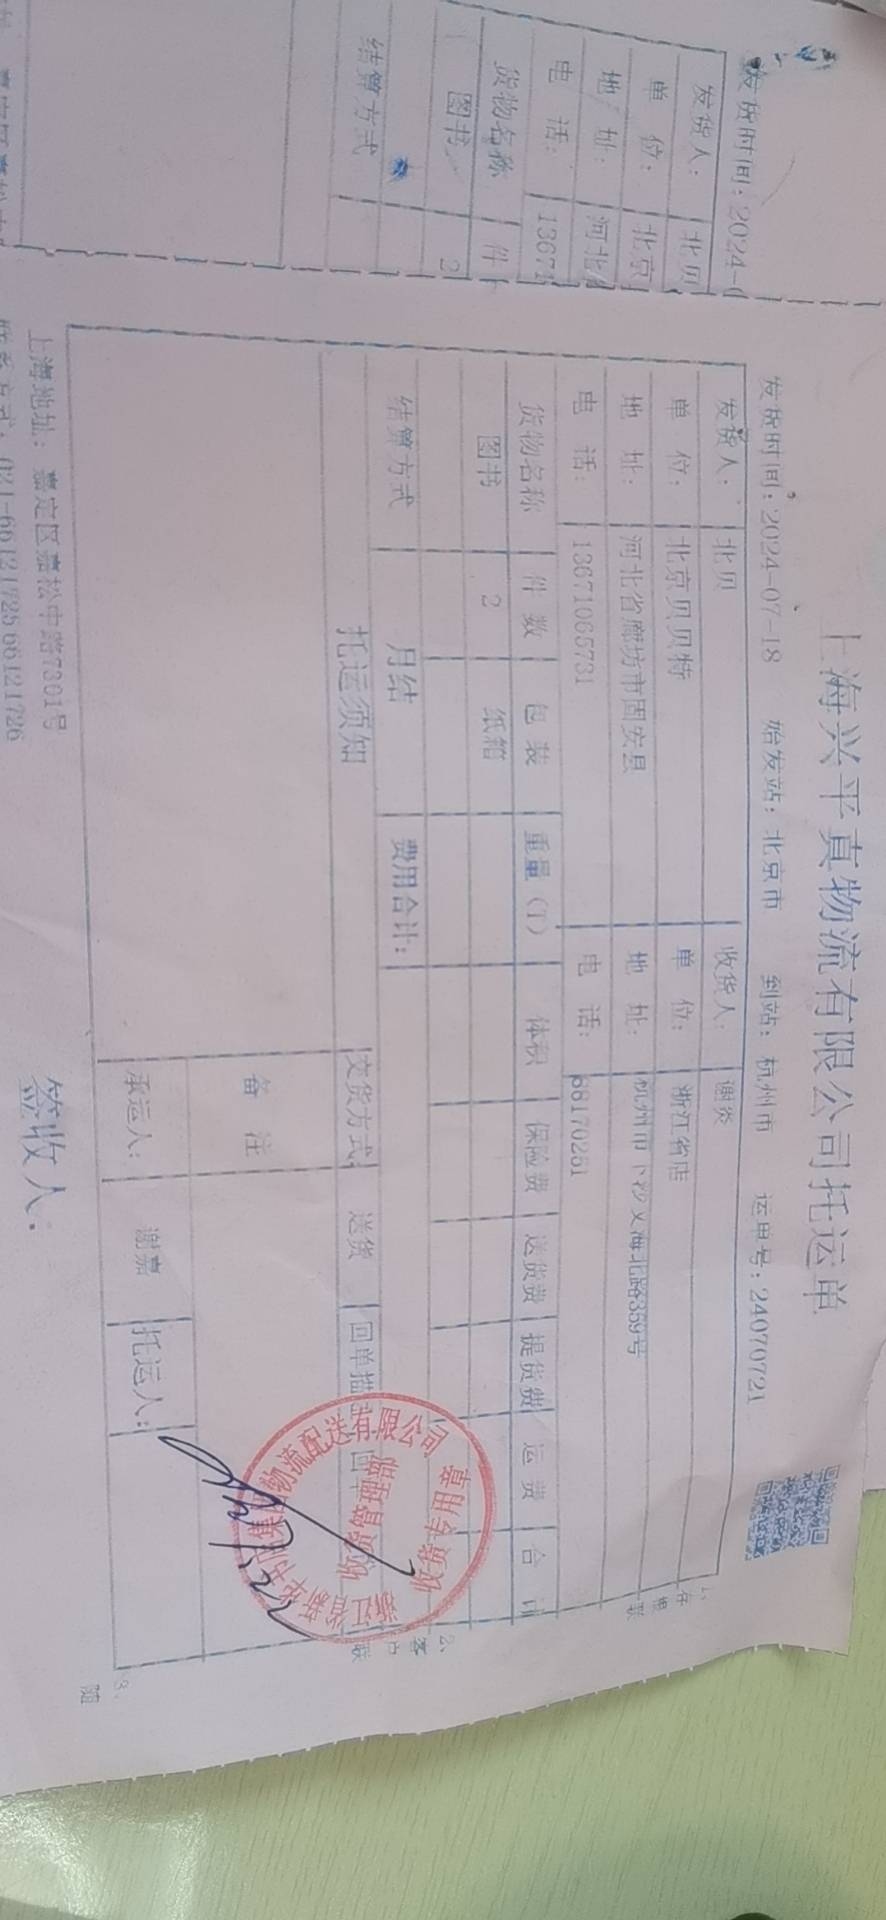 上海兴平真物流有限公司托运单
发货时间：2024-07-18 始发站：北京市 到站：杭州市 运单号：24070721
发货人： 北贝 收货人： 谢炎
单 位： 北京贝贝特 单 位： 浙江省店
地 址： 河北省廊坊市固安县 地 址： 杭州市下沙文海北路369号
电 话： 13671065731 电 话： 68170251
货物名称 件 数 包 装 重量（T） 体积 保险费 送货费 提货费 运 费 合 计
图书 2 纸箱
结算方式 月结 费用合计：
托运须知 交货方式： 送货 回单描述 回单
备 注
承运人： 谢嘉 托运人：
签收人：
上海地址： 嘉定区嘉松中路7301号
联系方式：021-66121725 66121726
收货管理部
收货专用章
客户联
3、随
发货时间：2024-0
发货人： 北贝
单 位： 北京
地 址： 河北
电 话： 13671
货物名称 件
图书 2
结算方式